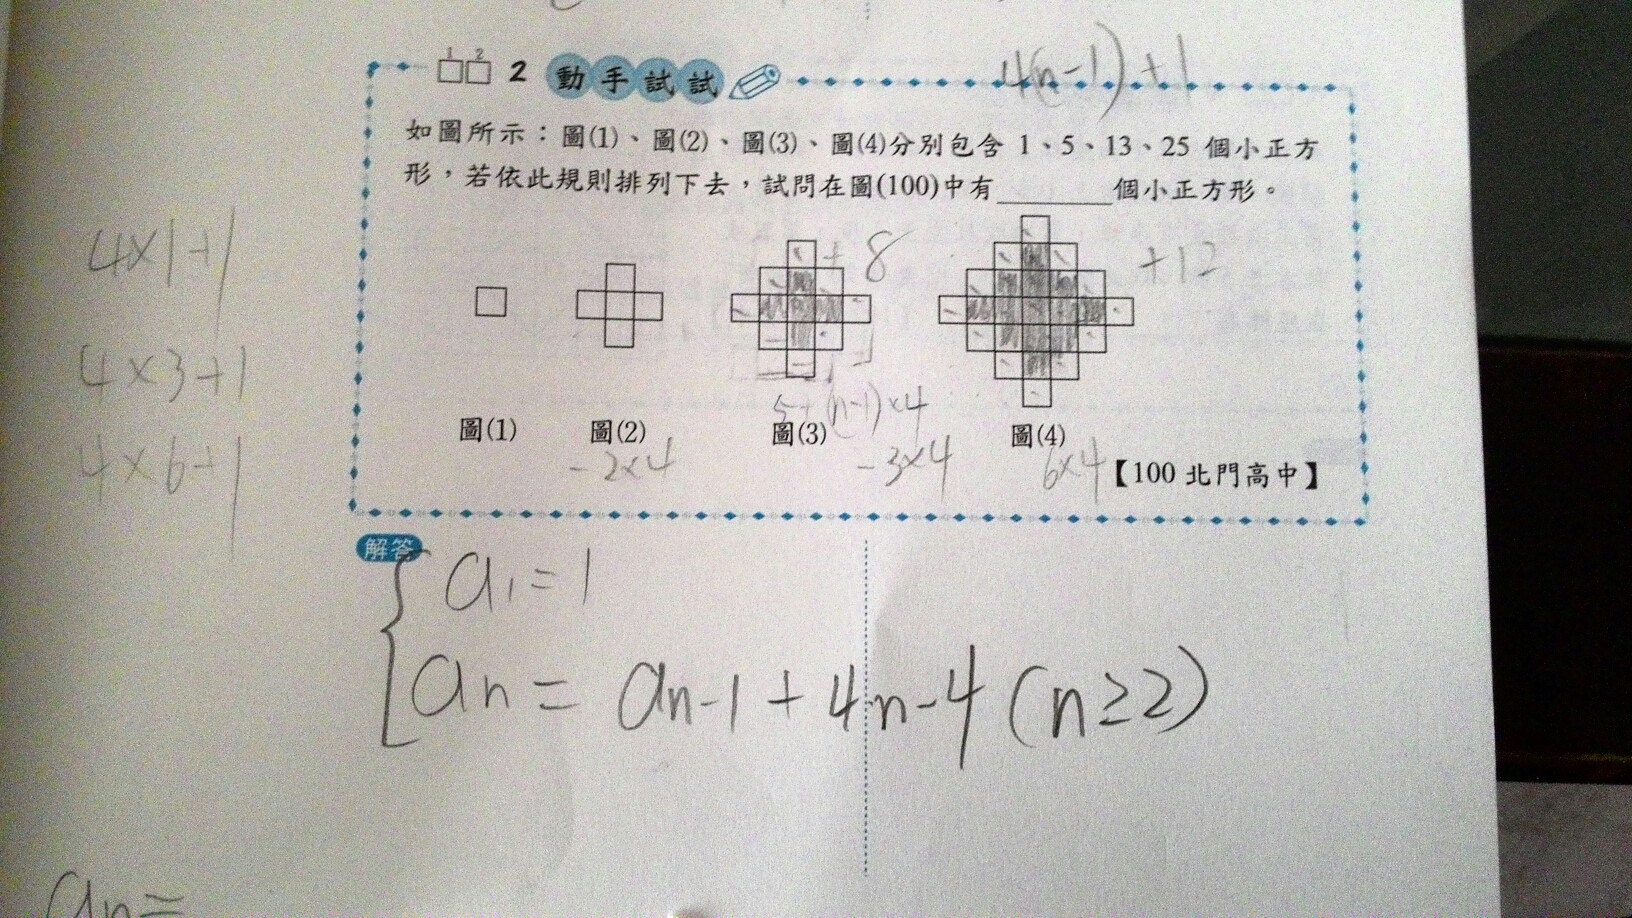 1 2
2 動手試試
4(n-1)+1
如圖所示：圖(1)、圖(2)、圖(3)、圖(4)分別包含 1、5、13、25 個小正方
形，若依此規則排列下去，試問在圖(100)中有________個小正方形。
4×1+1
+8
+12
4×3+1
5+(n-1)×4
圖(1) 圖(2) 圖(3) 圖(4)
4×6+1
-2×4
-3×4
6×4
【100 北門高中】
解答
a1=1
an= an-1+4n-4(n≥2)
an=